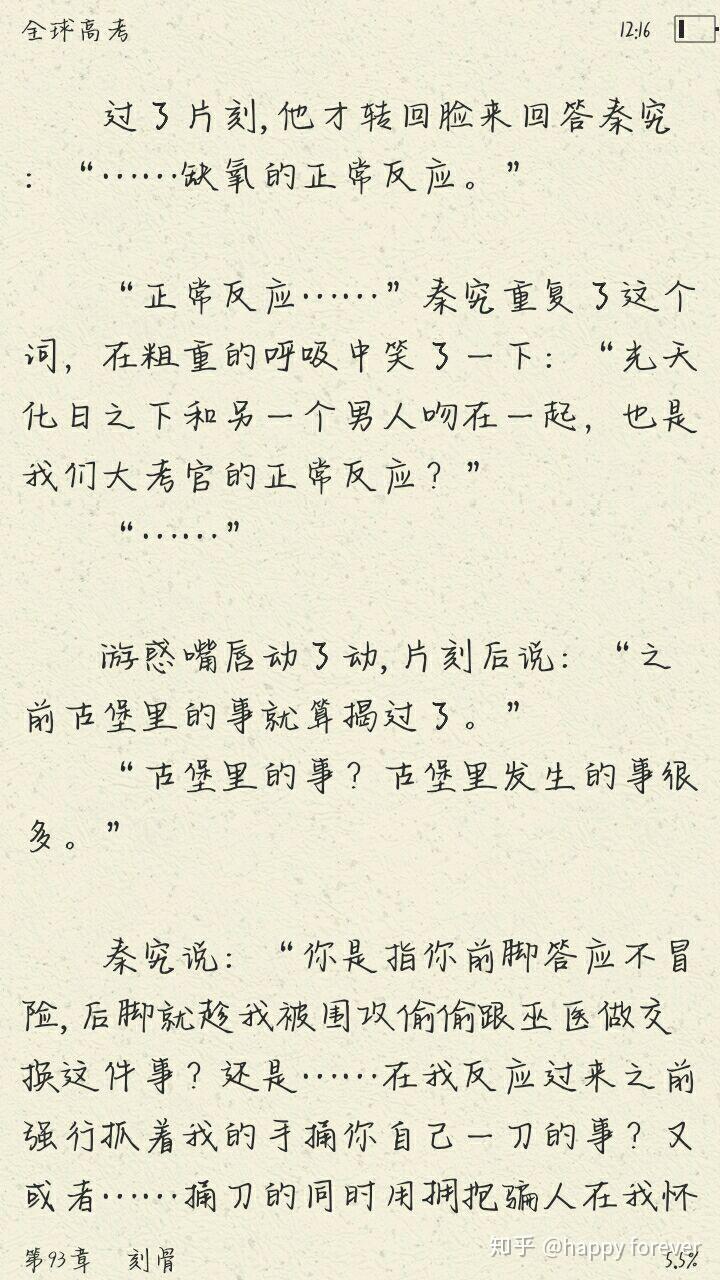 全球高考 12:16
过了片刻,他才转回脸来回答秦究
：“……缺氧的正常反应。”
“正常反应……”秦究重复了这个
词，在粗重的呼吸中笑了一下：“光天
化日之下和另一个男人吻在一起，也是
我们大考官的正常反应？”
“……”
游惑嘴唇动了动,片刻后说：“之
前古堡里的事就算揭过了。”
“古堡里的事？古堡里发生的事很
多。”
秦究说：“你是指你前脚答应不冒
险,后脚就趁我被围攻偷偷跟巫医做交
换这件事？还是……在我反应过来之前
强行抓着我的手捅你自己一刀的事？又
或者……捅刀的同时用拥抱骗人在我怀
第93章 刻骨 5.5%
知乎 @happy forever